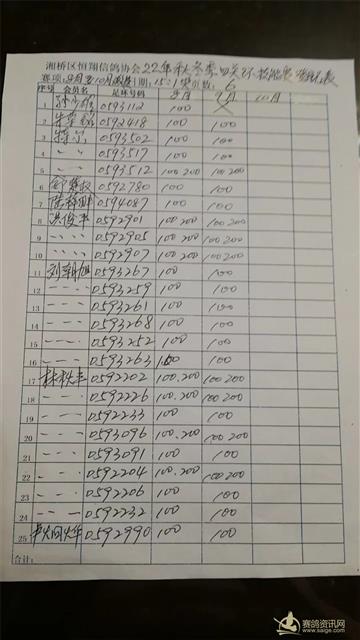 湘桥区恒翔信鸽协会22年秋冬季四关环
赛项: 9月至10月 日期: 15:1 奖引数: 6
序号 会员名 足环号码 9月 10月
1 0593112 100
2 0592418 100 100
3 0593502 100 100
4 〃 〃 0593517 100 100
5 〃 〃 0593512 100 200 100 200
6 0592780 100 100
7 0594087 100 100
8 洪俊丰 0592901 100.200 100.200
9 〃 〃 〃 0592905 100.200 100.200
10 〃 〃 〃 0592907 100.200 100 200
11 刘朝旭 0593267 100 100
12 0593259 100 100
13 0593261 100 100
14 0593268 100 100
15 0593252 100 100
16 0593263 100 100
17 林秋丰 0592202 100.200 100 200
18 0592226 100.200 100 200
19 0592233 100 100
20 0593096 100.200 100 200
21 0593091 100 100
22 0592204 100.200 100 200
23 0592206 100 100
24 0592232 100 100
25 0592990 100 100
合计:
赛鸽资讯网
www.saige.com